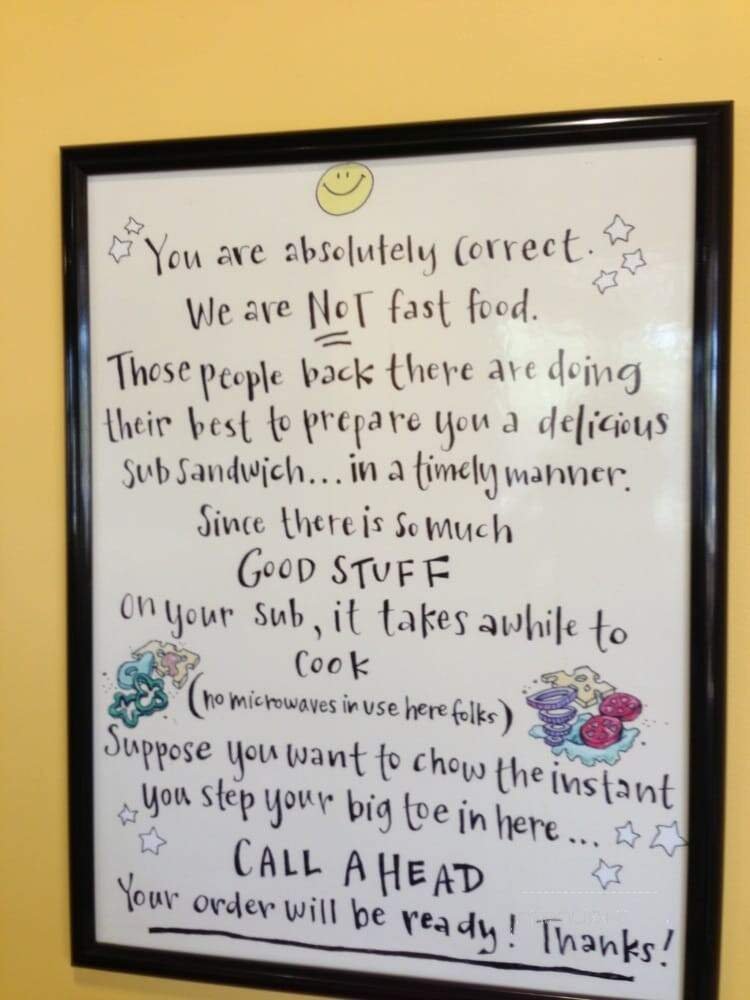 You are absolutely correct.
We are NOT fast food.
Those people back there are doing
their best to prepare you a delicious
sub sandwich... in a timely manner.
Since there is so much
GOOD STUFF
on your sub, it takes awhile to
cook
(no microwaves in use here folks)
Suppose you want to chow the instant
you step your big toe in here...
CALL AHEAD
Your order will be ready! Thanks!